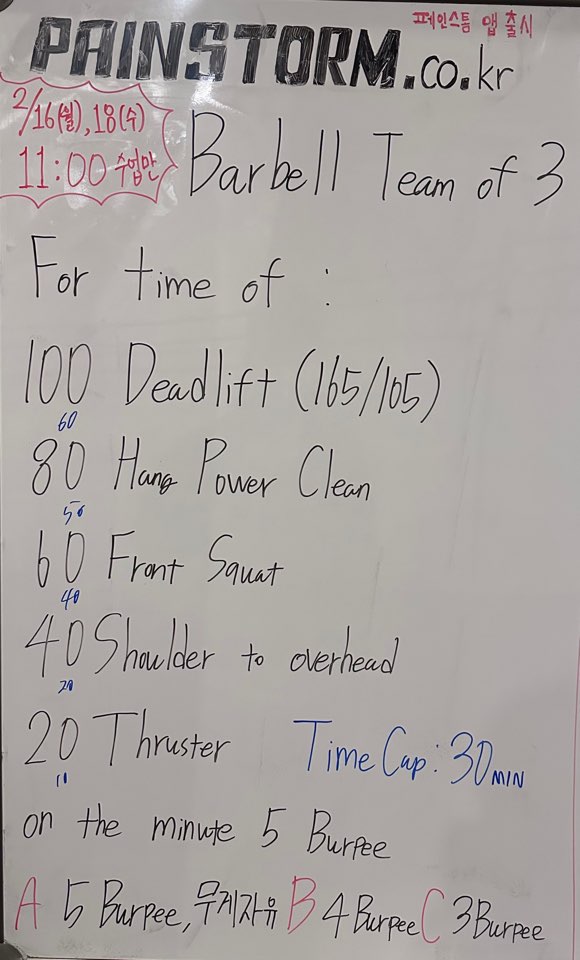 페인스톰 앱 출시
PAINSTORM.co.kr
2/16(월),18(수)
11:00 수업만
Barbell Team of 3
For time of :
100 Deadlift (165/105)
60
80 Hang Power Clean
50
60 Front Squat
40
40 Shoulder to overhead
20
20 Thruster Time Cap: 30MIN
11
on the minute 5 Burpee
A 5 Burpee, 무게자유 B 4 Burpee C 3 Burpee